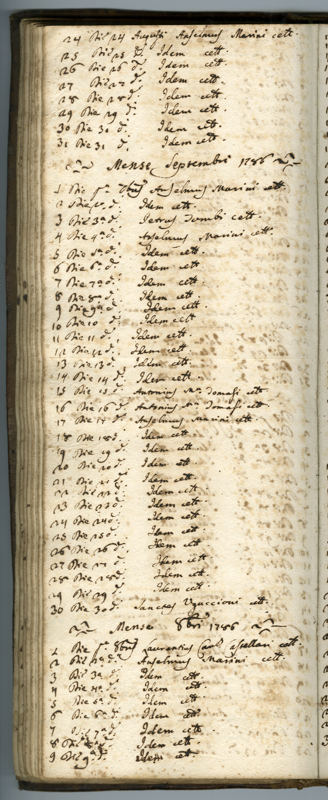 24 Die 24 Augusti Anselmus Marini cett.
25 Die 25 d. Idem cett.
26 Die 26 d. Idem cett.
27 Die 27 d. Idem cett.
28 Die 28 d. Idem cett.
29 Die 29 d. Idem cett.
30 Die 30 d. Idem cett.
31 Die 31 d. Idem cett.
Mense Septembri 1786
1 Die pa. 7bris Anselmus Marini cett.
2 Die 2a. d. Idem cett.
3 Die 3a d. Petrus Tombi cett.
4 Die 4a d. Anselmus Marini cett.
5 Die 5a d. Idem cett.
6 Die 6a d. Idem cett.
7 Die 7a d. Idem cett.
8 Die 8a d. Idem cett.
9 Die 9a d. Idem cett.
10 Die 10 d. Idem cett
11 Die 11 d. Idem cett.
12 Die 12 d. Idem cett
13 Die 13 d. Idem cett.
14 Die 14 d. Idem cett.
15 Die 15 d. Antonius Ma. Tomasi cett.
16 Die 16 d. Antonius Ma. Tomasi cett.
17 Die 17 d. Anselmus Marini cett.
18 Die 18 d. Idem cett.
19 Die 19 d. Idem cett.
20 Die 20 d. Idem cett
21 Die 21 d. Idem cett.
22 Die 22 d. Idem cett.
23 Die 23 d. Idem cett.
24 Die 24 d. Idem cett.
25 Die 25 d. Idem cett
26 Die 26 d. Idem cett
27 Die 27 d. Idem cett.
28 Die 28 d. Idem cett.
29 Die 29 d. Idem cett
30 Die 30 d. Sanctes Uguccioni cett.
Mense 8bri 1786
1 Die pa. 8bris Laurentius cett.
2 Die 2a d. Anselmus Marini cett.
3 Die 3a d. Idem cett
4 Die 4a d. Idem cett.
5 Die d. Idem cett.
6 Die 6a d. Idem cett
7 Die 7a d. Idem cett
8 Die 8a d. Idem cett.
9 Die 9a d. Idem cett